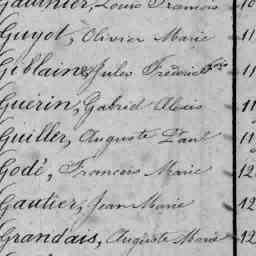 Gaudnier, Louis François 10
Guyot, Olivier Marie 11
Giblaine, Jules Frédéric 11
Guérin, Gabriel Alexis 11
Guiller, Auguste Paul 11
Godé, François Marie 12
Gautier, Jean Marie 12
Grandais, Auguste Marie 12